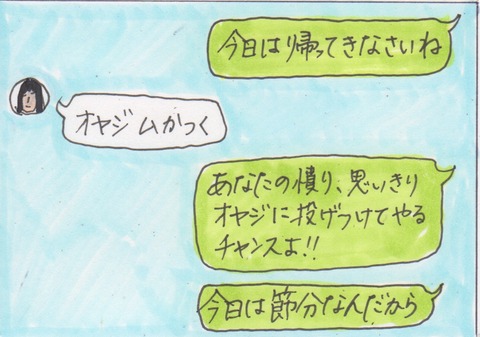 今日は帰ってきなさいね
オヤジ ムかつく
あなたの憤り、思いきり
オヤジに投げつけてやる
チャンスよ!!
今日は節分なんだから